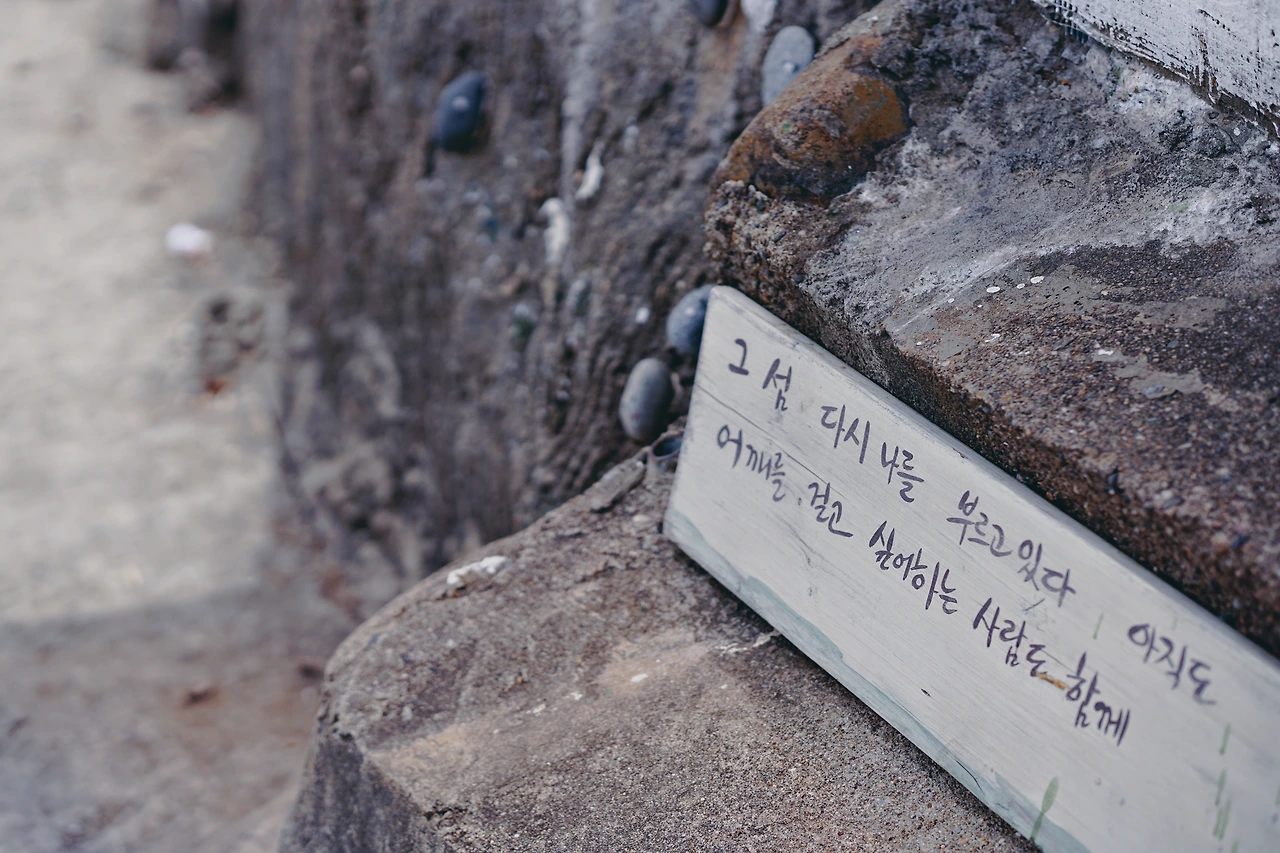 그 섬 다시 나를 부르고 있다 아직도
어깨를 걸고 싶어하는 사람도 함께